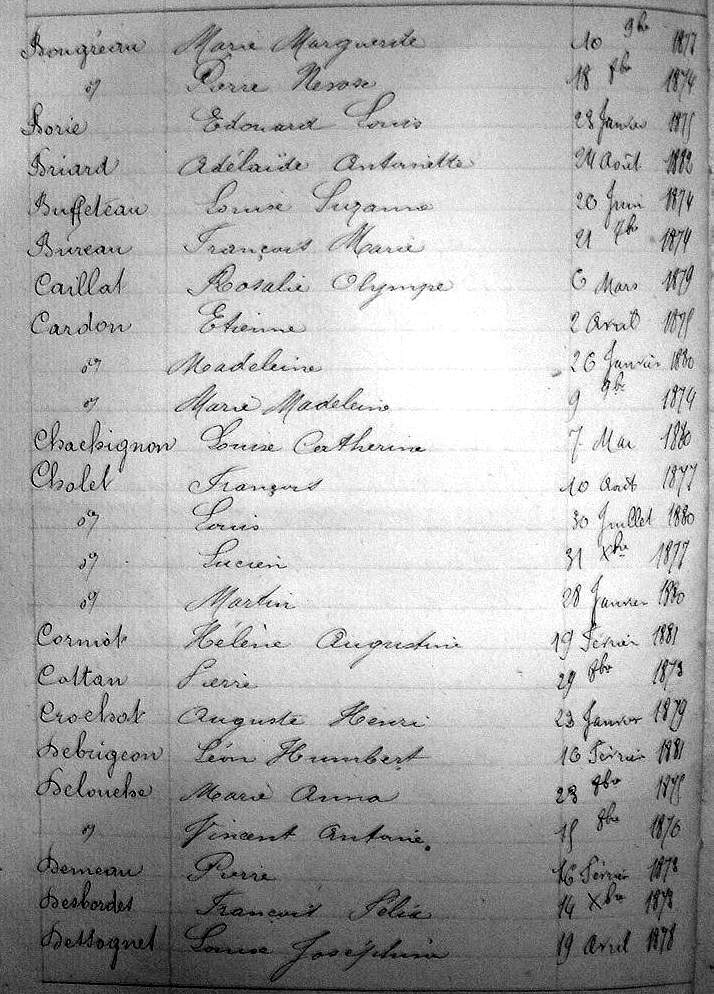 Bongréau Marie Marguerite 10 9bre 1877
d° Pierre 18 8bre 1874
Borie Edouard Louis 28 Janvier 1875
Briard Adélaïde Antoinette 24 Août 1882
Buffeteau Louise Suzanne 20 Juin 1874
Bureau François Marie 21 7bre 1874
Caillat Rosalie Olympe 6 Mars 1879
Cardon Etienne 2 Avril 1875
d° Madeleine 26 Janvier 1880
d° Marie Madeleine 9 9bre 1874
Chachignon Louise Catherine 7 Mai 1880
Cholet François 10 Août 1877
d° Louis 30 Juillet 1880
d° Lucien 31 Xbre 1877
d° Martin 28 Janvier 1880
Corniot Hélène Augustine 19 Février 1881
Cottan Pierre 29 8bre 1873
Crochot Auguste Henri 23 Janvier 1879
Debrigeon Léon Humbert 16 Février 1881
Delouche Marie Anna 23 8bre 1875
d° Vincent Antoine 15 8bre 1876
Demeau Pierre 16 Février 1873
Desbordes François Félix 14 Xbre 1873
Dessognet Louise Joséphine 19 Avril 1878